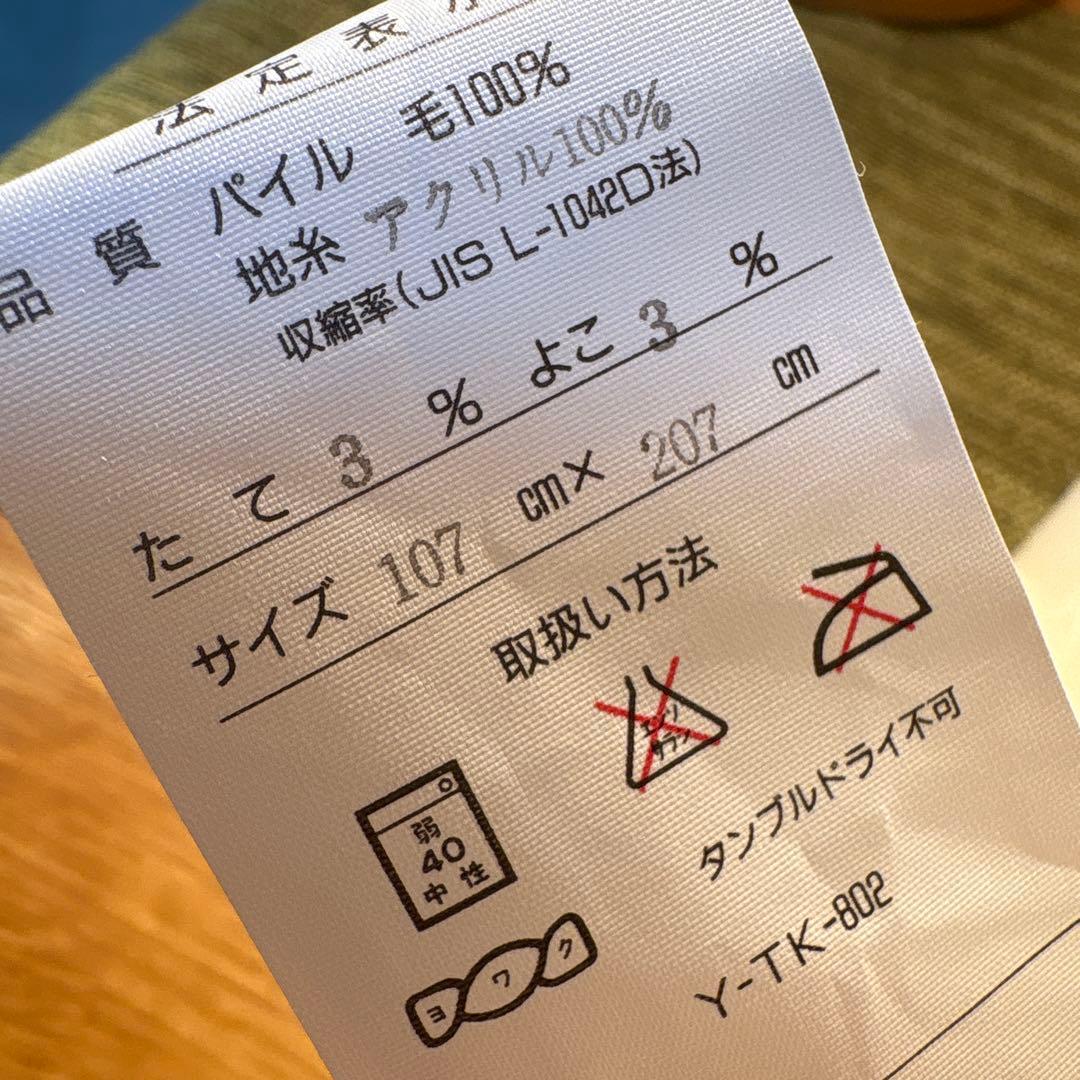 法定表示
品質 パイル 毛100%
地糸 アクリル100%
収縮率(JIS L-1042D法)
たて 3 % よこ 3 %
サイズ 107 cm× 207 cm
取扱い方法
エンソ
サラシ
弱
40
中性
タンブルドライ不可
ヨワク
Y-TK-802